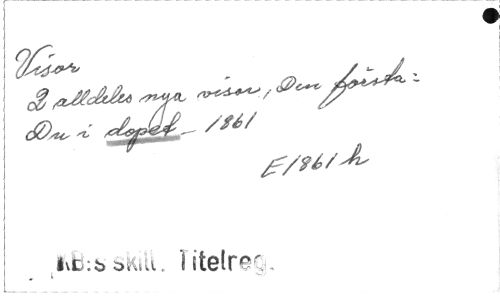 Visor
2 alldeles nya visor, Den första:
Du i dopet - 1861
E1861 h
KB:s skill. Titelreg.